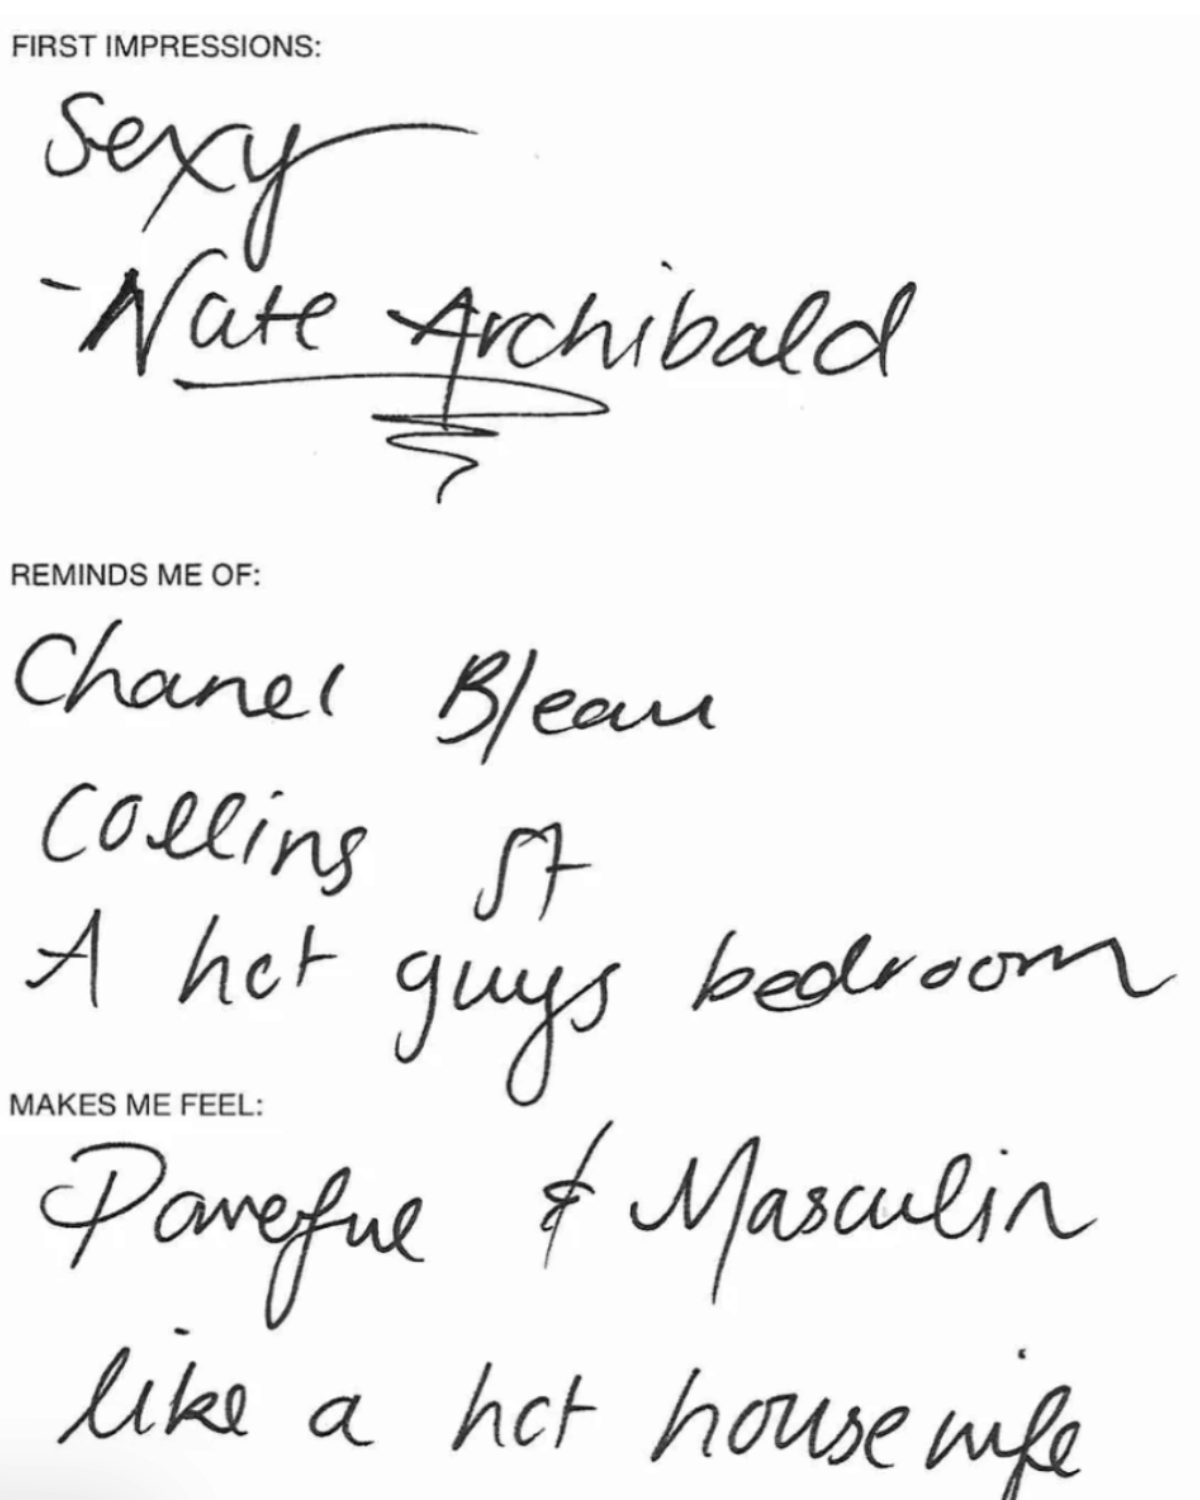 FIRST IMPRESSIONS:
Sexy
- Nate Archibald
REMINDS ME OF:
Chanel Bleau
Collins St
A hot guys bedroom
MAKES ME FEEL:
Powerful & Masculin
like a hot housewife